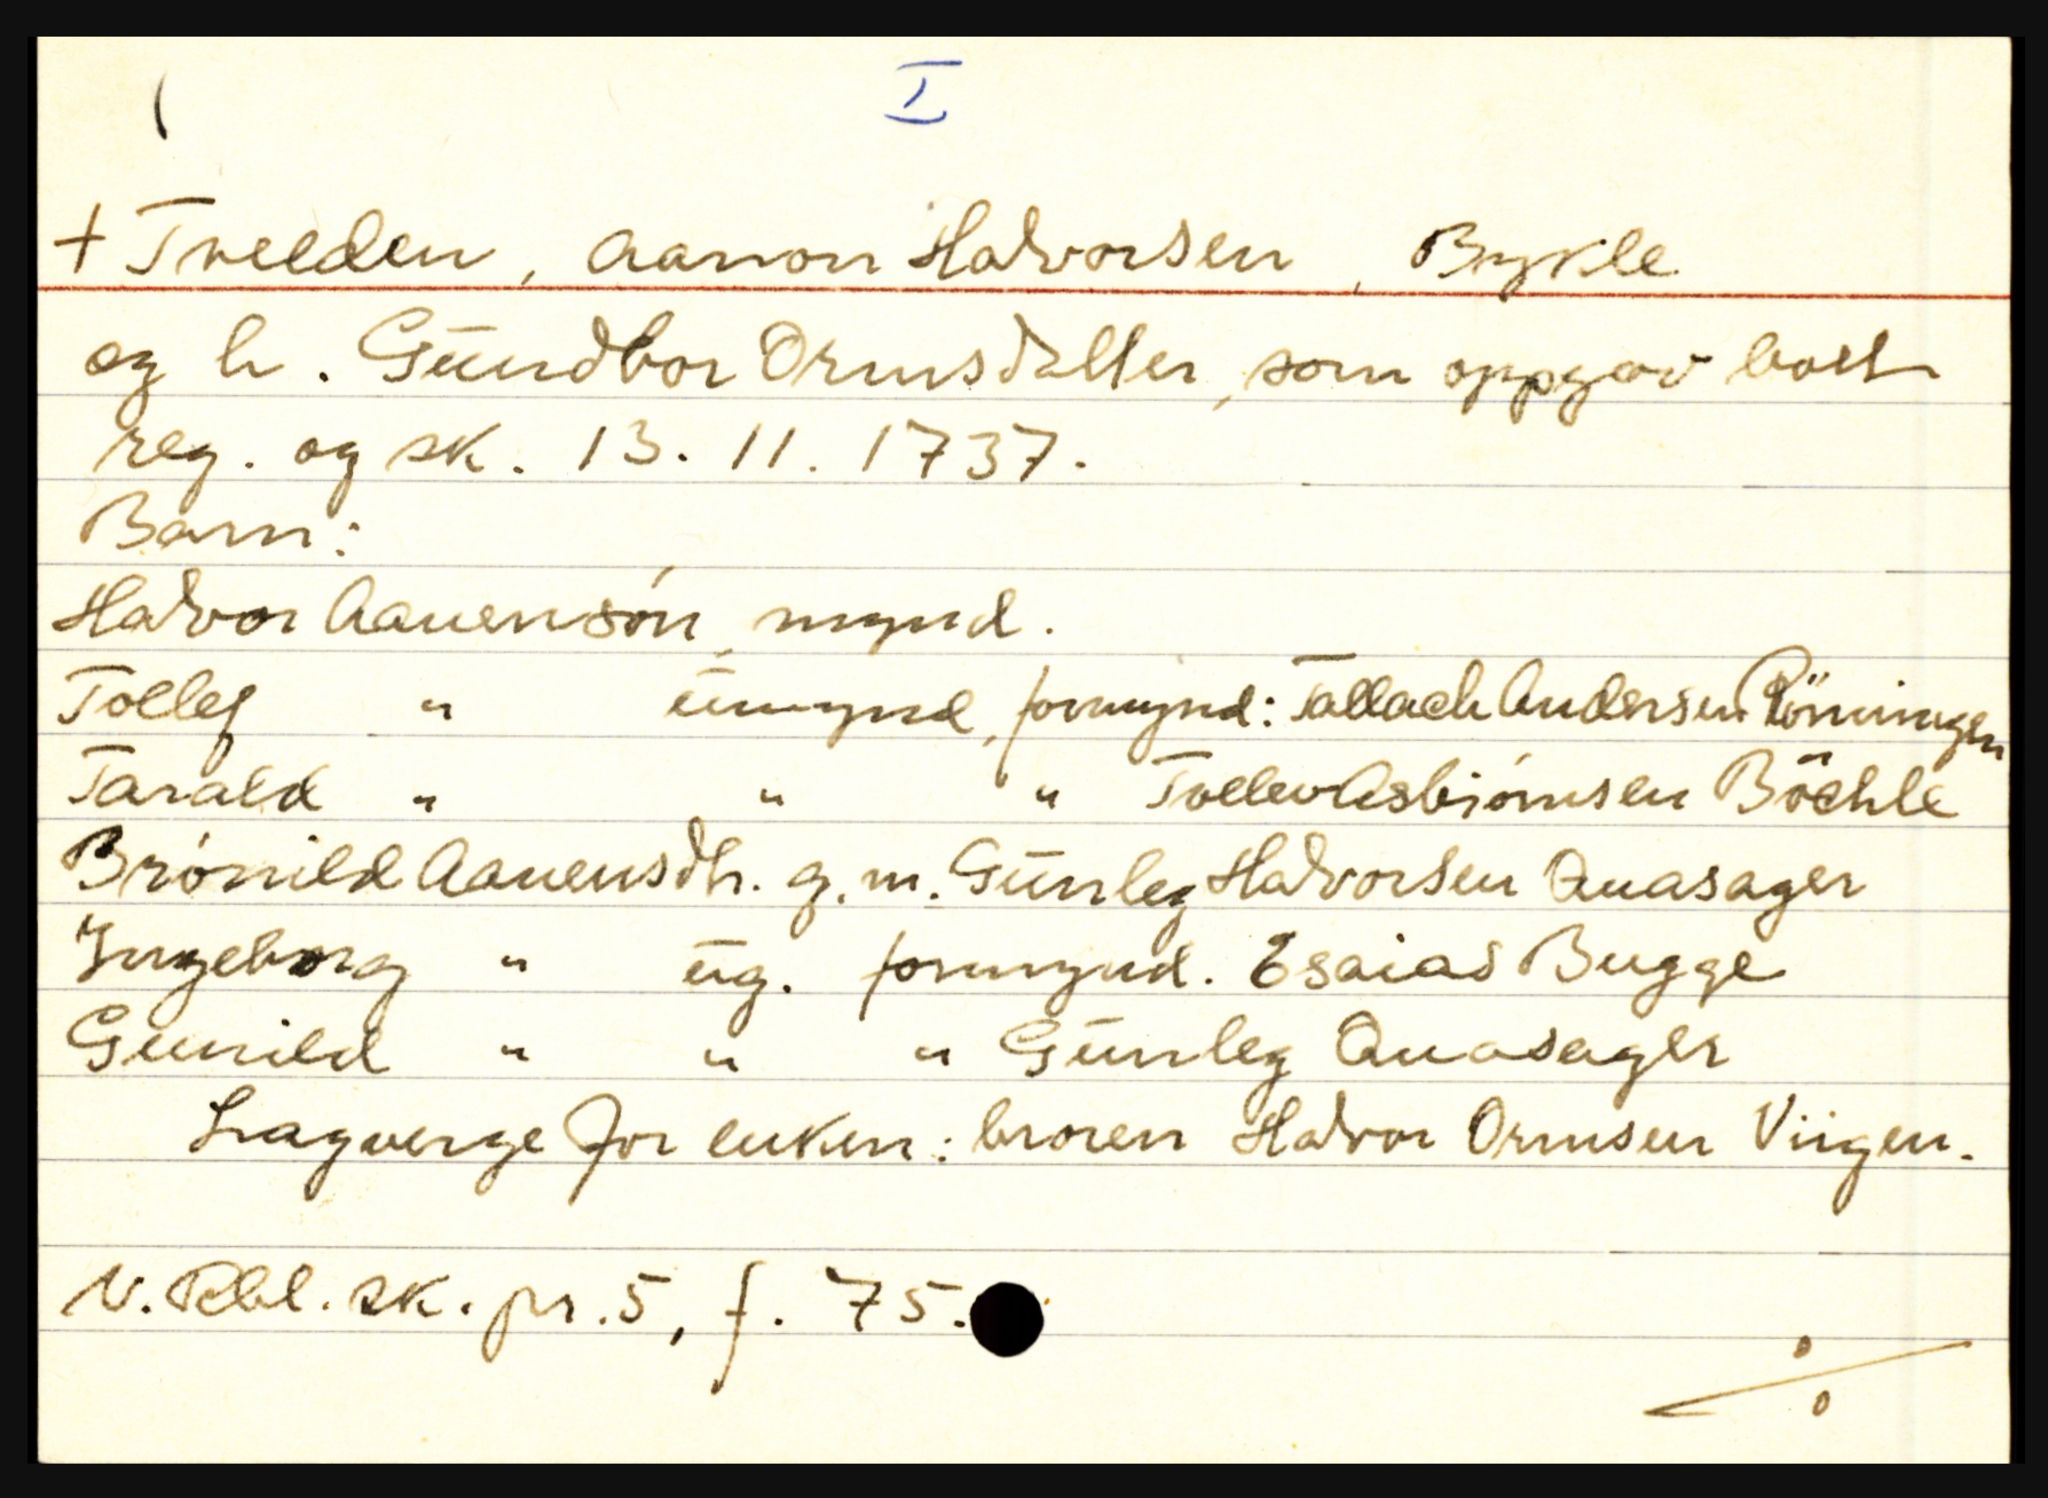 I
+ Trelden, Aanon Halvorsen, Bykle
og h. Gundbor Ormsdatter, som oppgav boet
reg. og sk. 13. 11. 1737.
Barn:
Halvor Aanensón, mynd.
Tolleg " umynd, formynd: Tallach Andersen Röningen
Tarald " " " Tollev Asbiórnsen Böchle
Brónild Aanensdtr. g. m. Gunleg Halvorsen Quasager
Ingeborg " ug. formynd. Esaias Bugge
Gunild " " " Gunleg Quasager
Lagverge for enken: broren Halvor Ormsen Viigen.
N. Rbl. sk. pr. 5, f. 75.